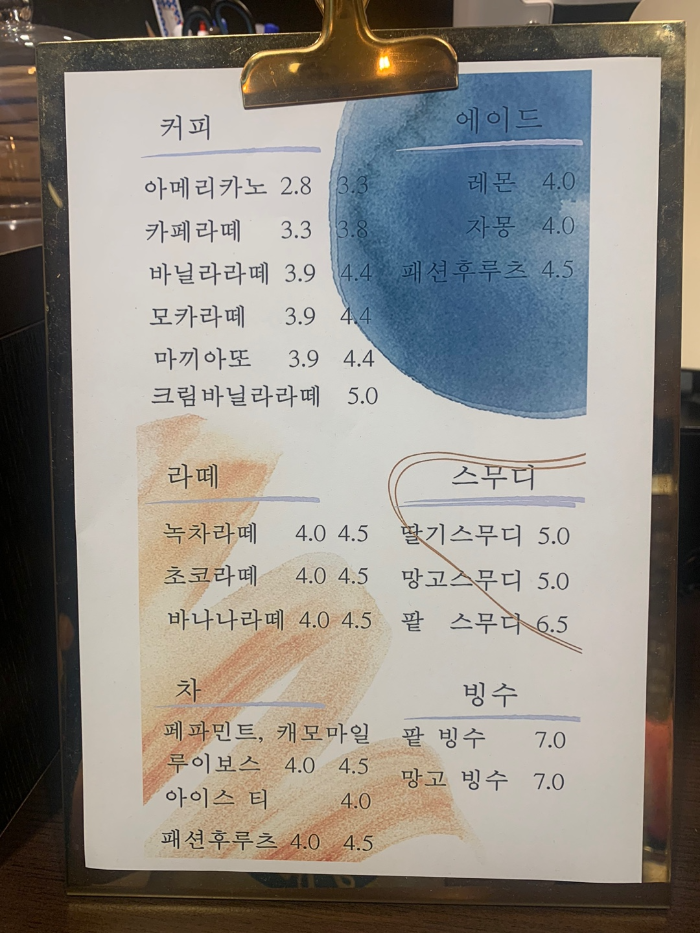 커피
아메리카노 2.8 3.3
카페라떼 3.3 3.8
바닐라라떼 3.9 4.4
모카라떼 3.9 4.4
마끼아또 3.9 4.4
크림바닐라라떼 5.0
에이드
레몬 4.0
자몽 4.0
패션후루츠 4.5
라떼
녹차라떼 4.0 4.5
초코라떼 4.0 4.5
바나나라떼 4.0 4.5
스무디
딸기스무디 5.0
망고스무디 5.0
팥 스무디 6.5
차
페파민트, 캐모마일
루이보스 4.0 4.5
아이스 티 4.0
패션후루츠 4.0 4.5
빙수
팥 빙수 7.0
망고 빙수 7.0